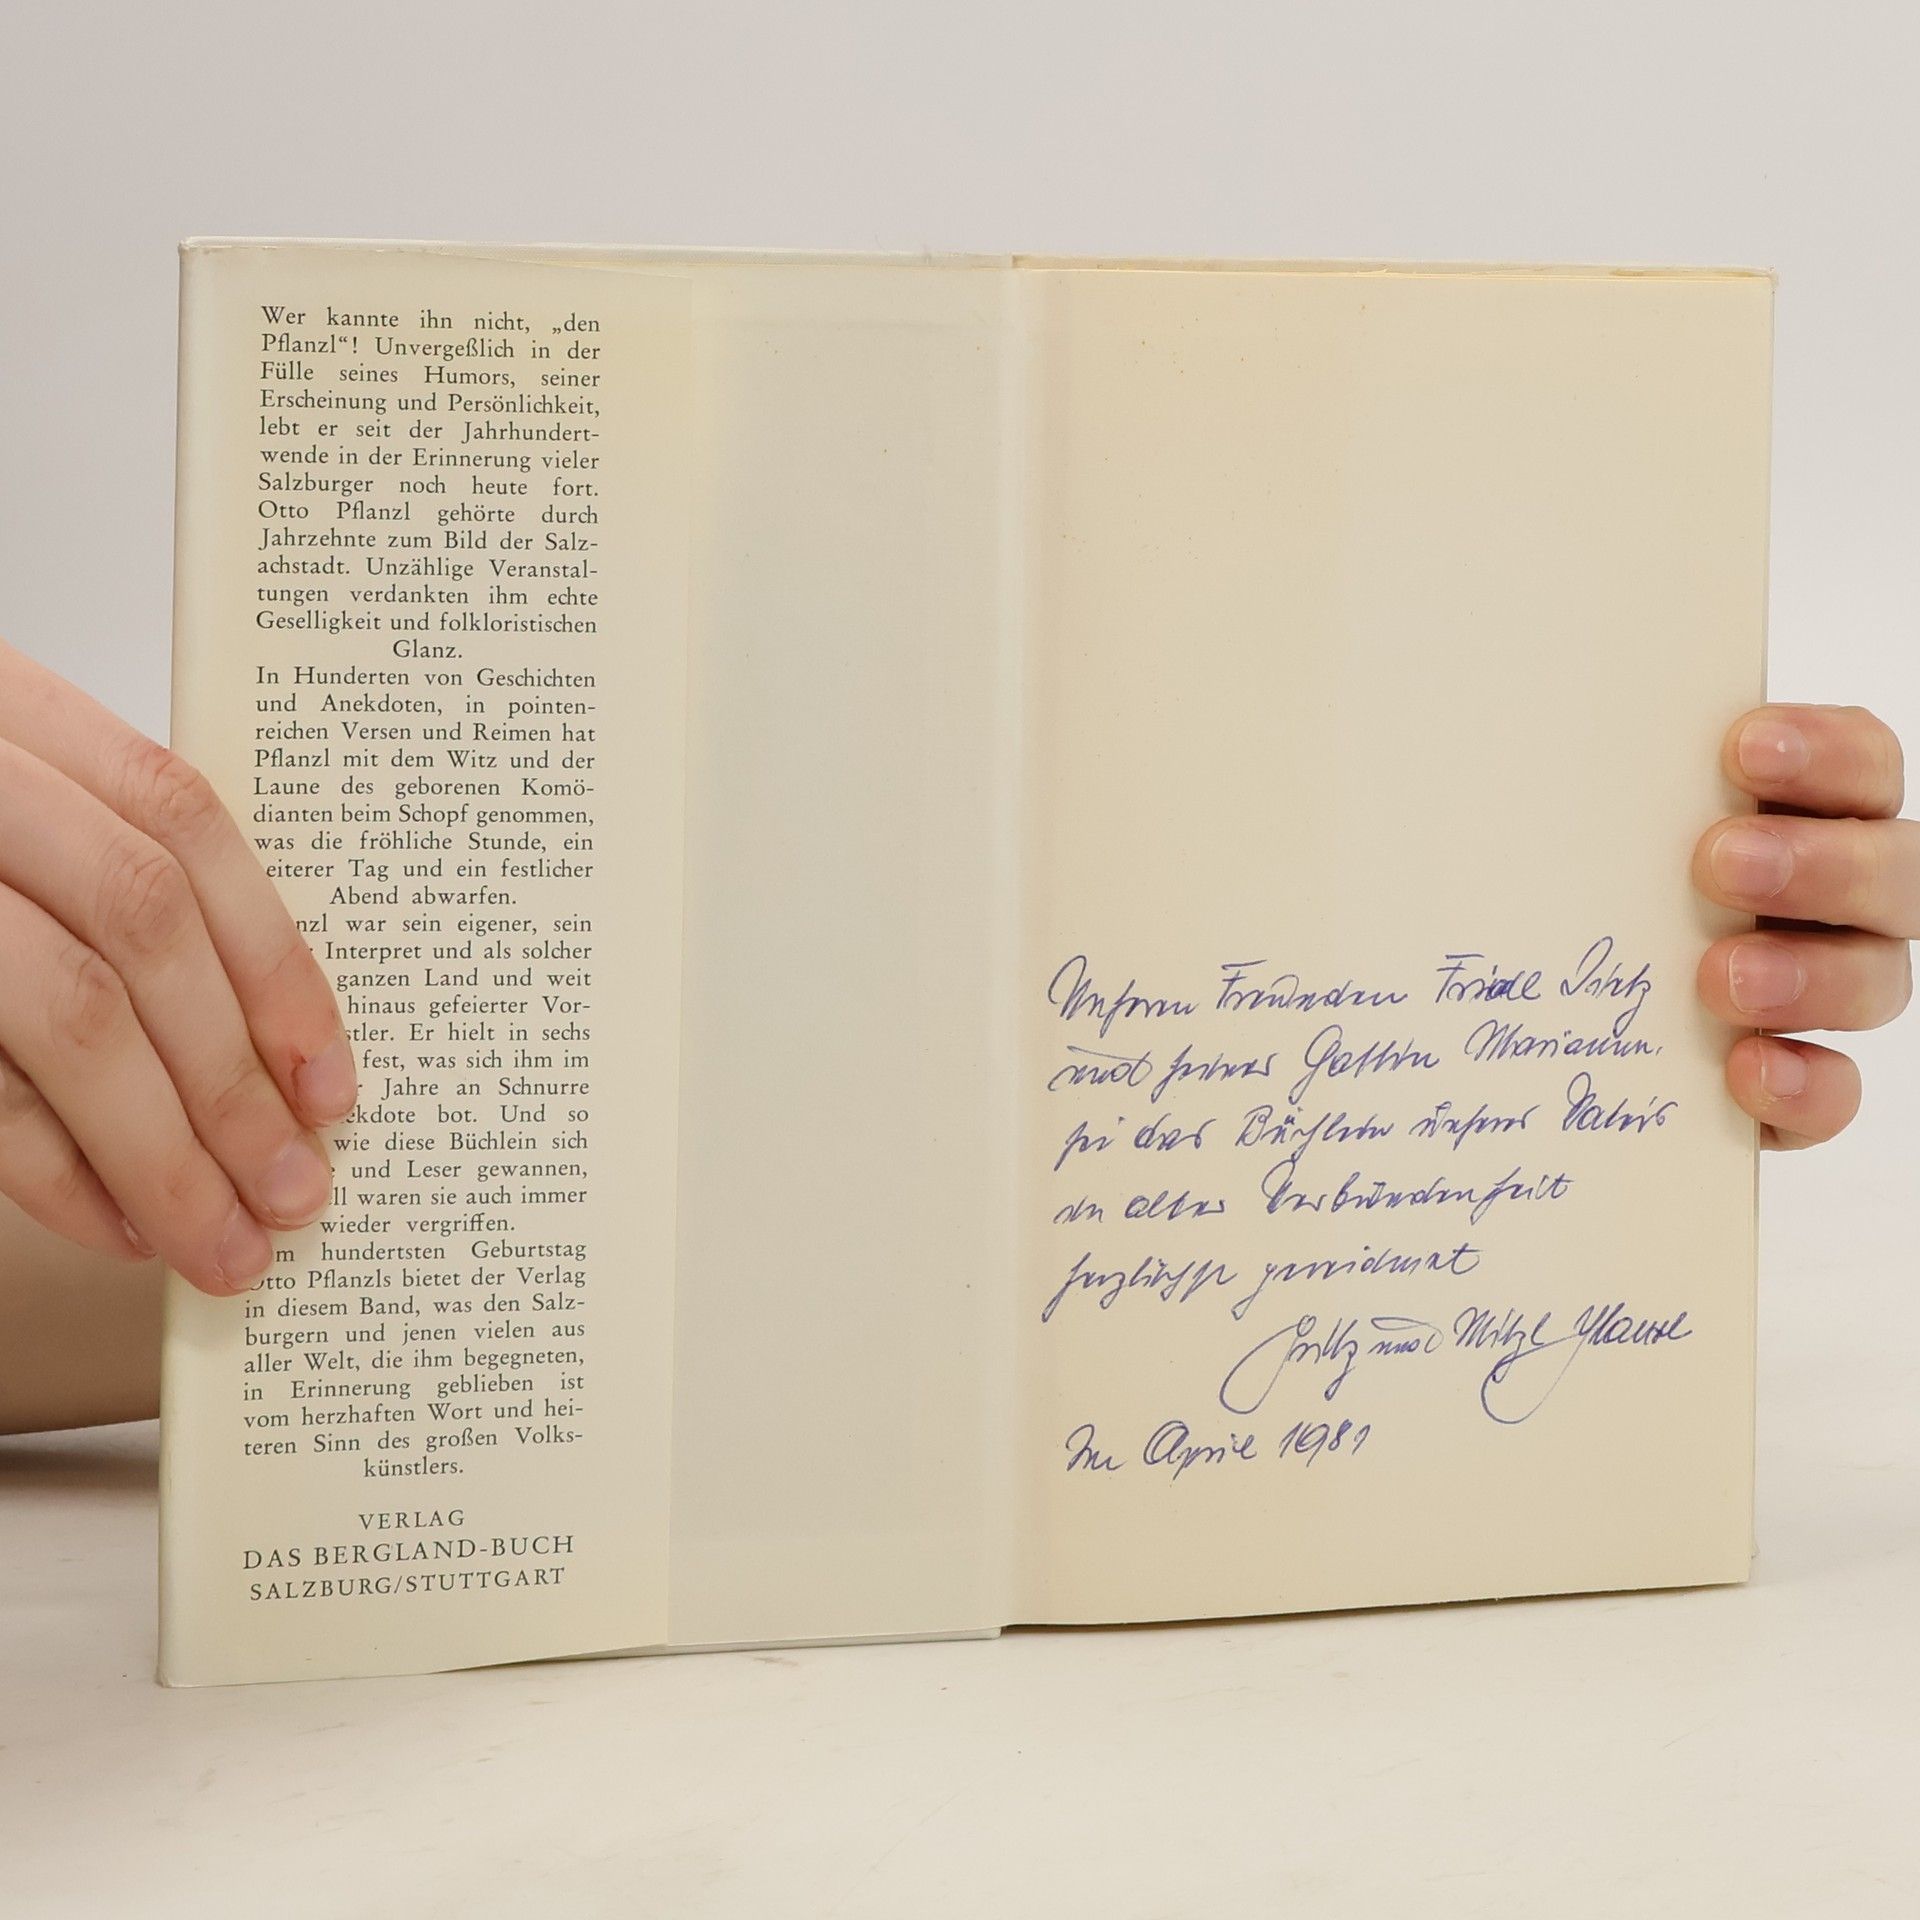 Wer kannte ihn nicht, „den
Pflanzl“! Unvergeßlich in der
Fülle seines Humors, seiner
Erscheinung und Persönlichkeit,
lebt er seit der Jahrhundert-
wende in der Erinnerung vieler
Salzburger noch heute fort.
Otto Pflanzl gehörte durch
Jahrzehnte zum Bild der Salz-
achstadt. Unzählige Veranstal-
tungen verdankten ihm echte
Geselligkeit und folkloristischen
Glanz.
In Hunderten von Geschichten
und Anekdoten, in pointen-
reichen Versen und Reimen hat
Pflanzl mit dem Witz und der
Laune des geborenen Komö-
dianten beim Schopf genommen,
was die fröhliche Stunde, ein
eiterer Tag und ein festlicher
Abend abwarfen.
nzl war sein eigener, sein
Interpret und als solcher
ganzen Land und weit
hinaus gefeierter Vor-
stler. Er hielt in sechs
fest, was sich ihm im
Jahre an Schnurre
ekdote bot. Und so
wie diese Büchlein sich
und Leser gewannen,
ll waren sie auch immer
wieder vergriffen.
m hundertsten Geburtstag
Otto Pflanzls bietet der Verlag
in diesem Band, was den Salz-
burgern und jenen vielen aus
aller Welt, die ihm begegneten,
in Erinnerung geblieben ist
vom herzhaften Wort und hei-
teren Sinn des großen Volks-
künstlers.
VERLAG
DAS BERGLAND-BUCH
SALZBURG/STUTTGART
Unseren Freunden Friedl
und seiner Gattin Mariann
sei das Büchlein unseres Vaters
in alter Verbundenheit
herzlichst gewidmet
Fritz und Mitzl
Im April 1981